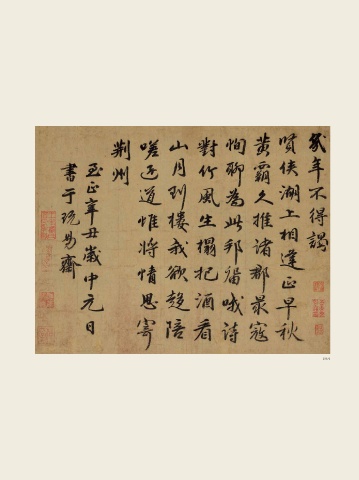 幾年不得謁
賢侯湖上相逢正早秋
黃霸久推諸郡最寇
恂聊為此邦留哦詩
對竹風生榻把酒看
山月到樓我欲趍陪
嗟遠道惟將情思寄
荊州
至正辛丑歲中元日
書于玩易齋